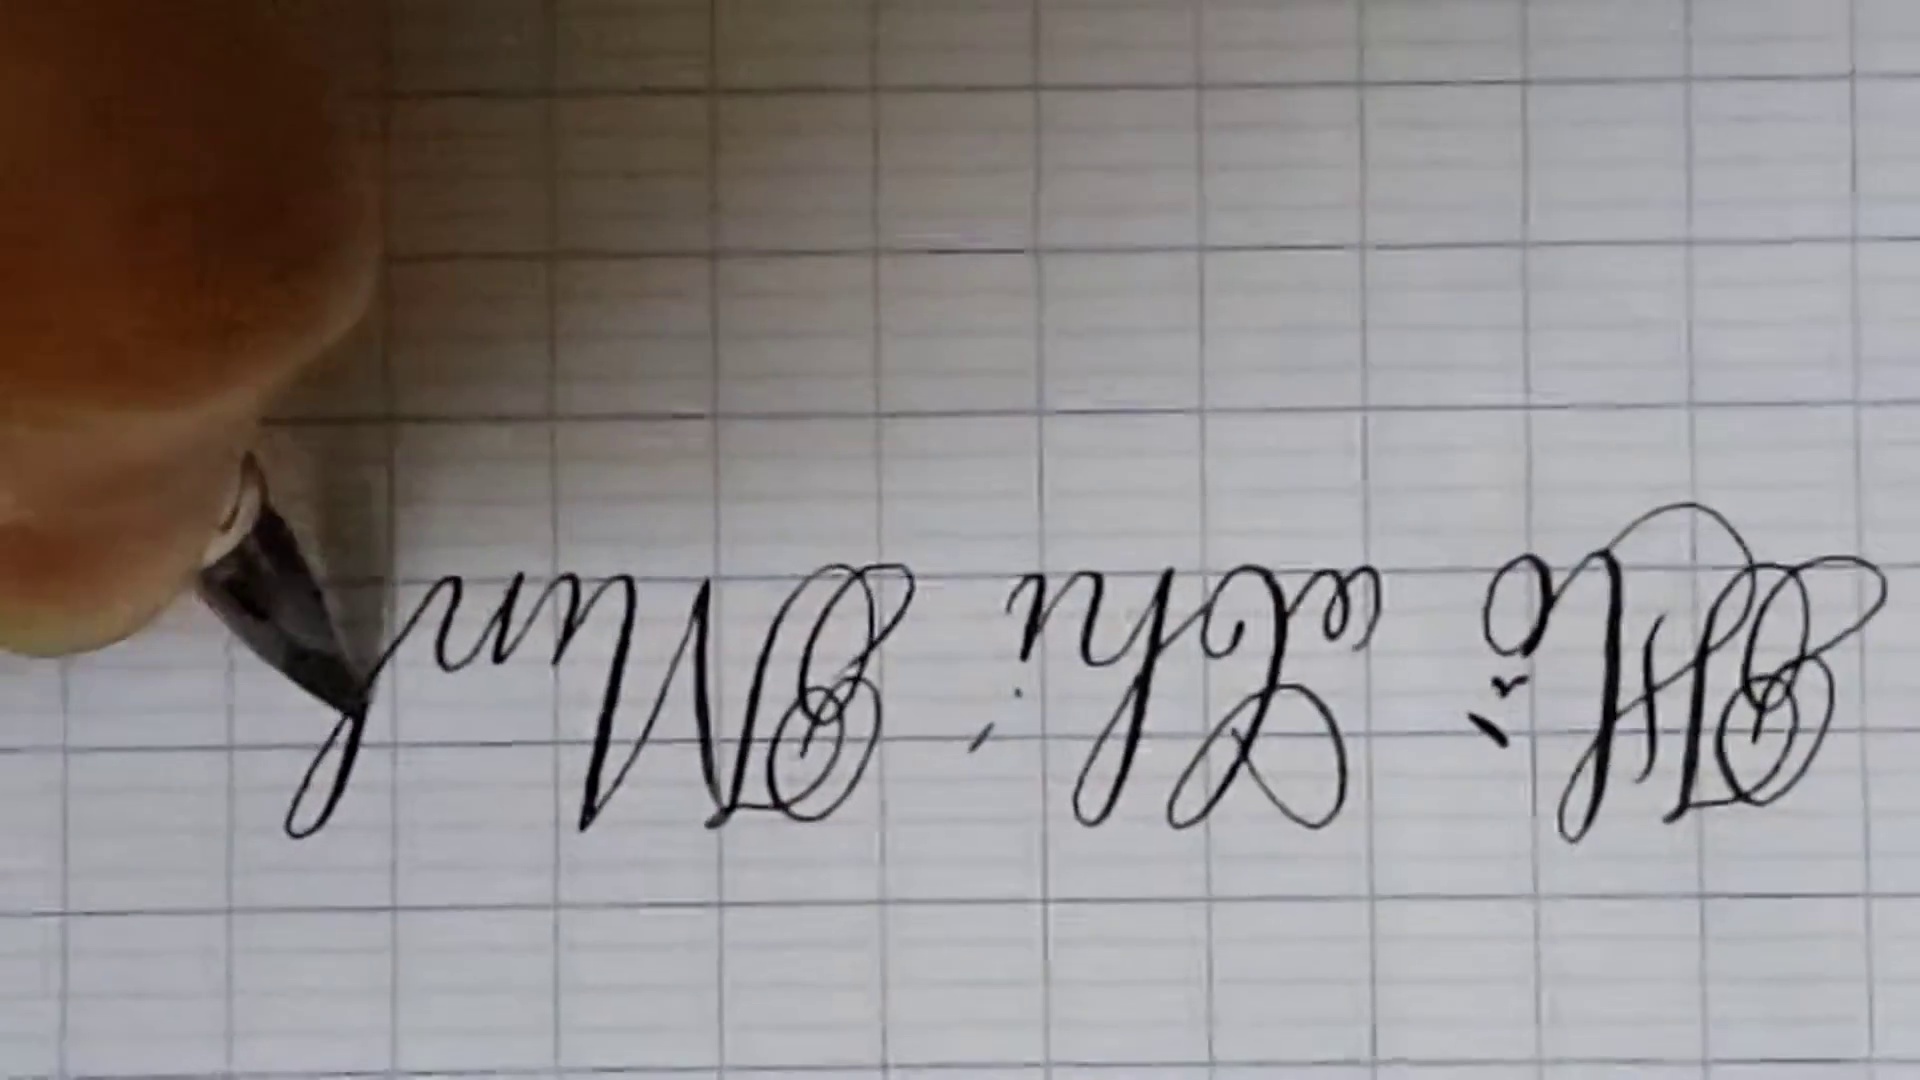 Hồ Chí Minh